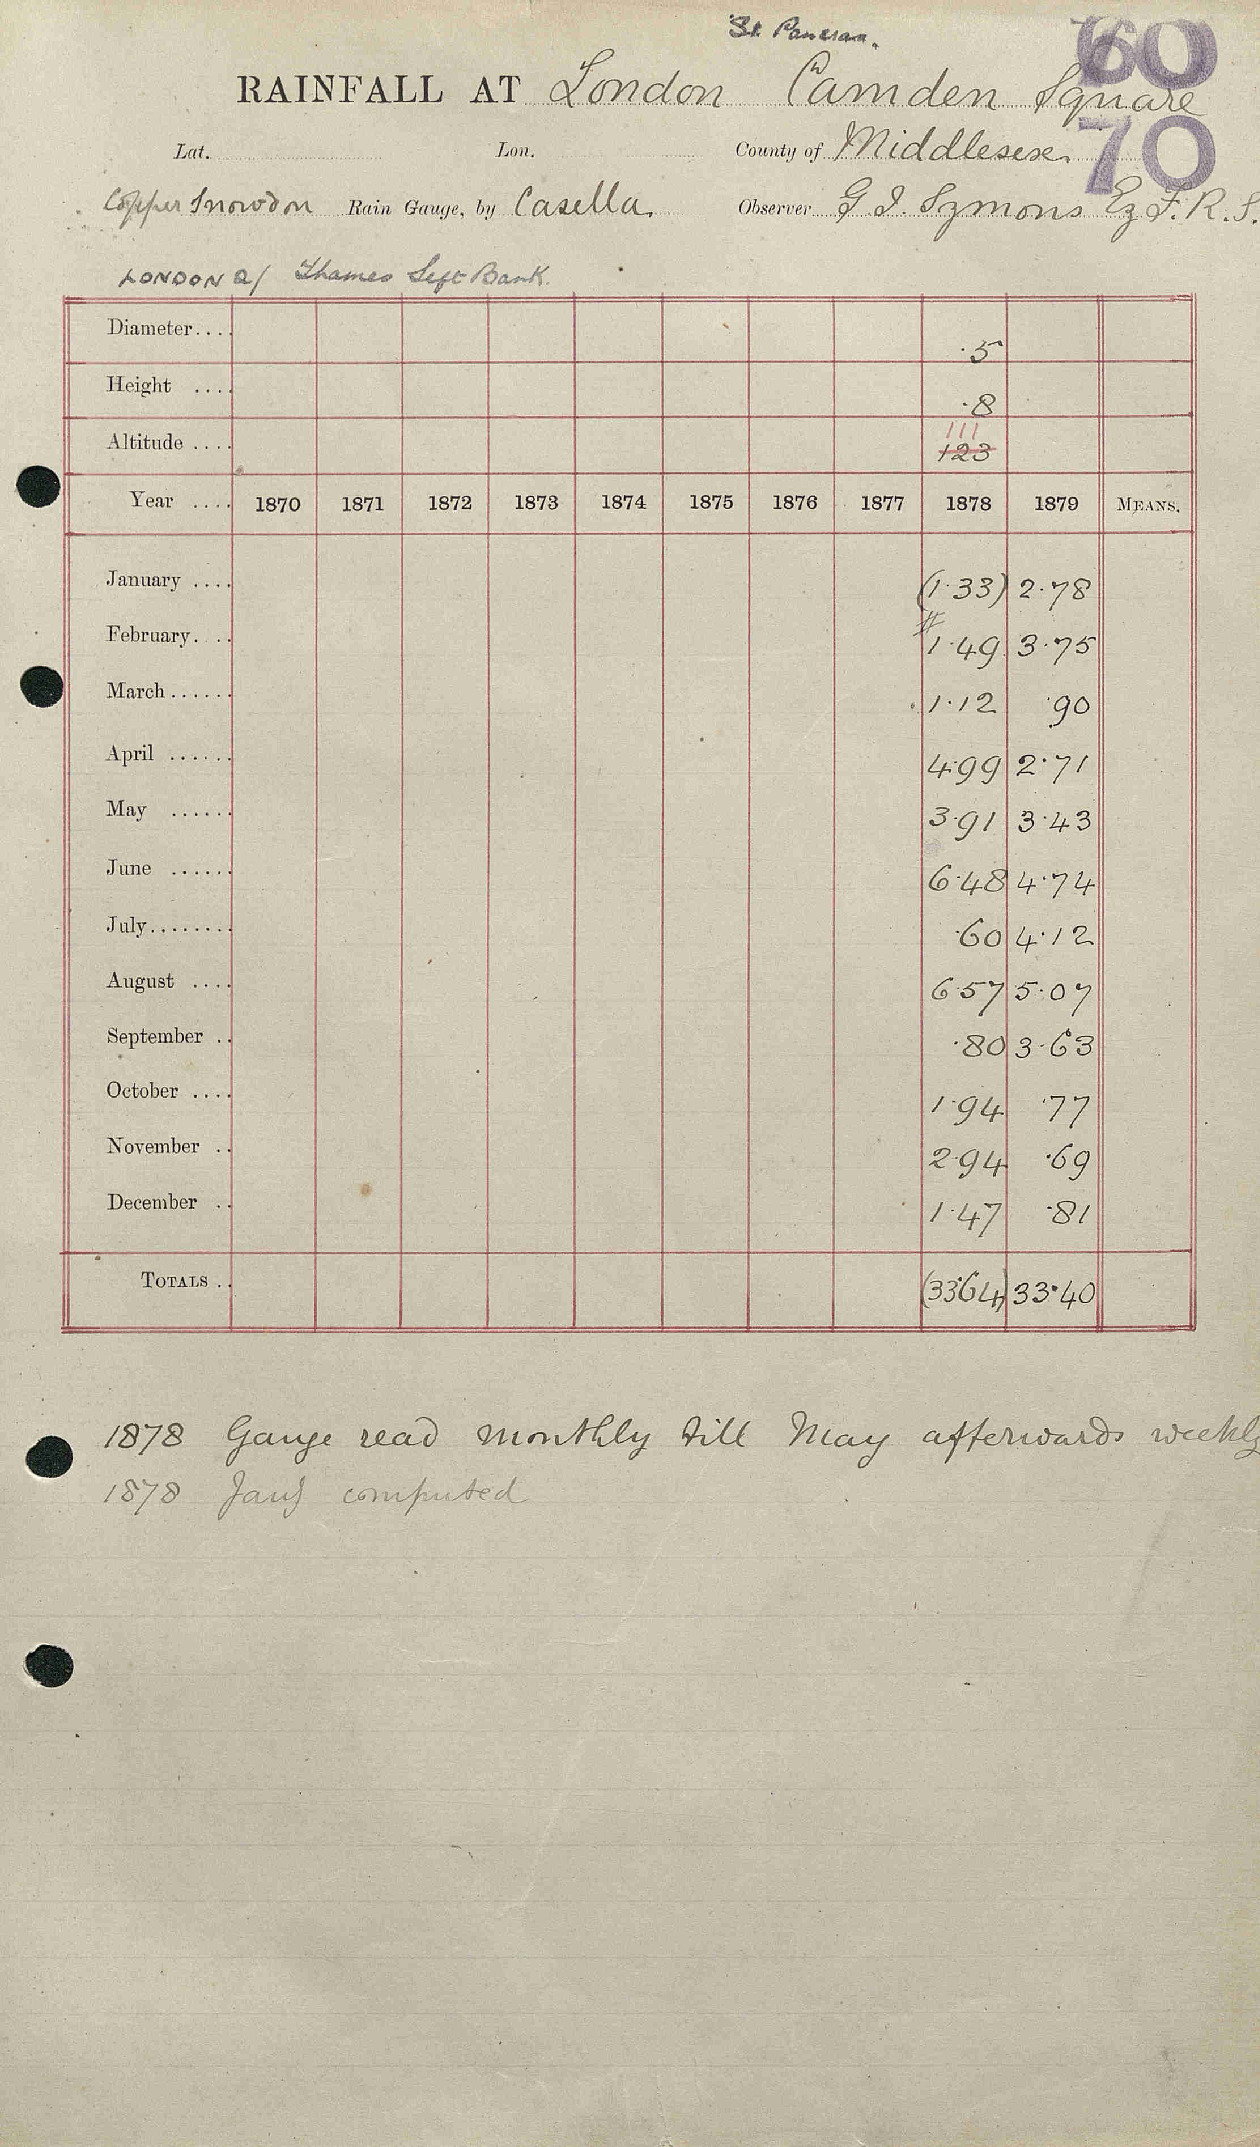 St Pancras.
60
RAINFALL AT London Camden Square
70
Lat. Lon. County of Middlesex.
Copper Snowdon Rain Gauge, by Casella. Observer G. J. Symons Eq F.R.S.
LONDON 2/ Thames Left Bank.
Diameter.... ·5
Height .... ·8
111
Altitude .... 123
Year .... 1870 1871 1872 1873 1874 1875 1876 1877 1878 1879 MEANS.
January .... (1·33) 2·78
February.... 1·49 3·75
March...... 1·12 ·90
April ...... 4·99 2·71
May ...... 3·91 3·43
June ...... 6·48 4·74
July........ ·60 4·12
August .... 6·57 5·07
September .. ·80 3·63
October .... 1·94 ·77
November .. 2·94 ·69
December .. 1·47 ·81
TOTALS .. (33·64) 33·40
1878 Gauge read monthly till May afterwards weekly
1878 Jany computed